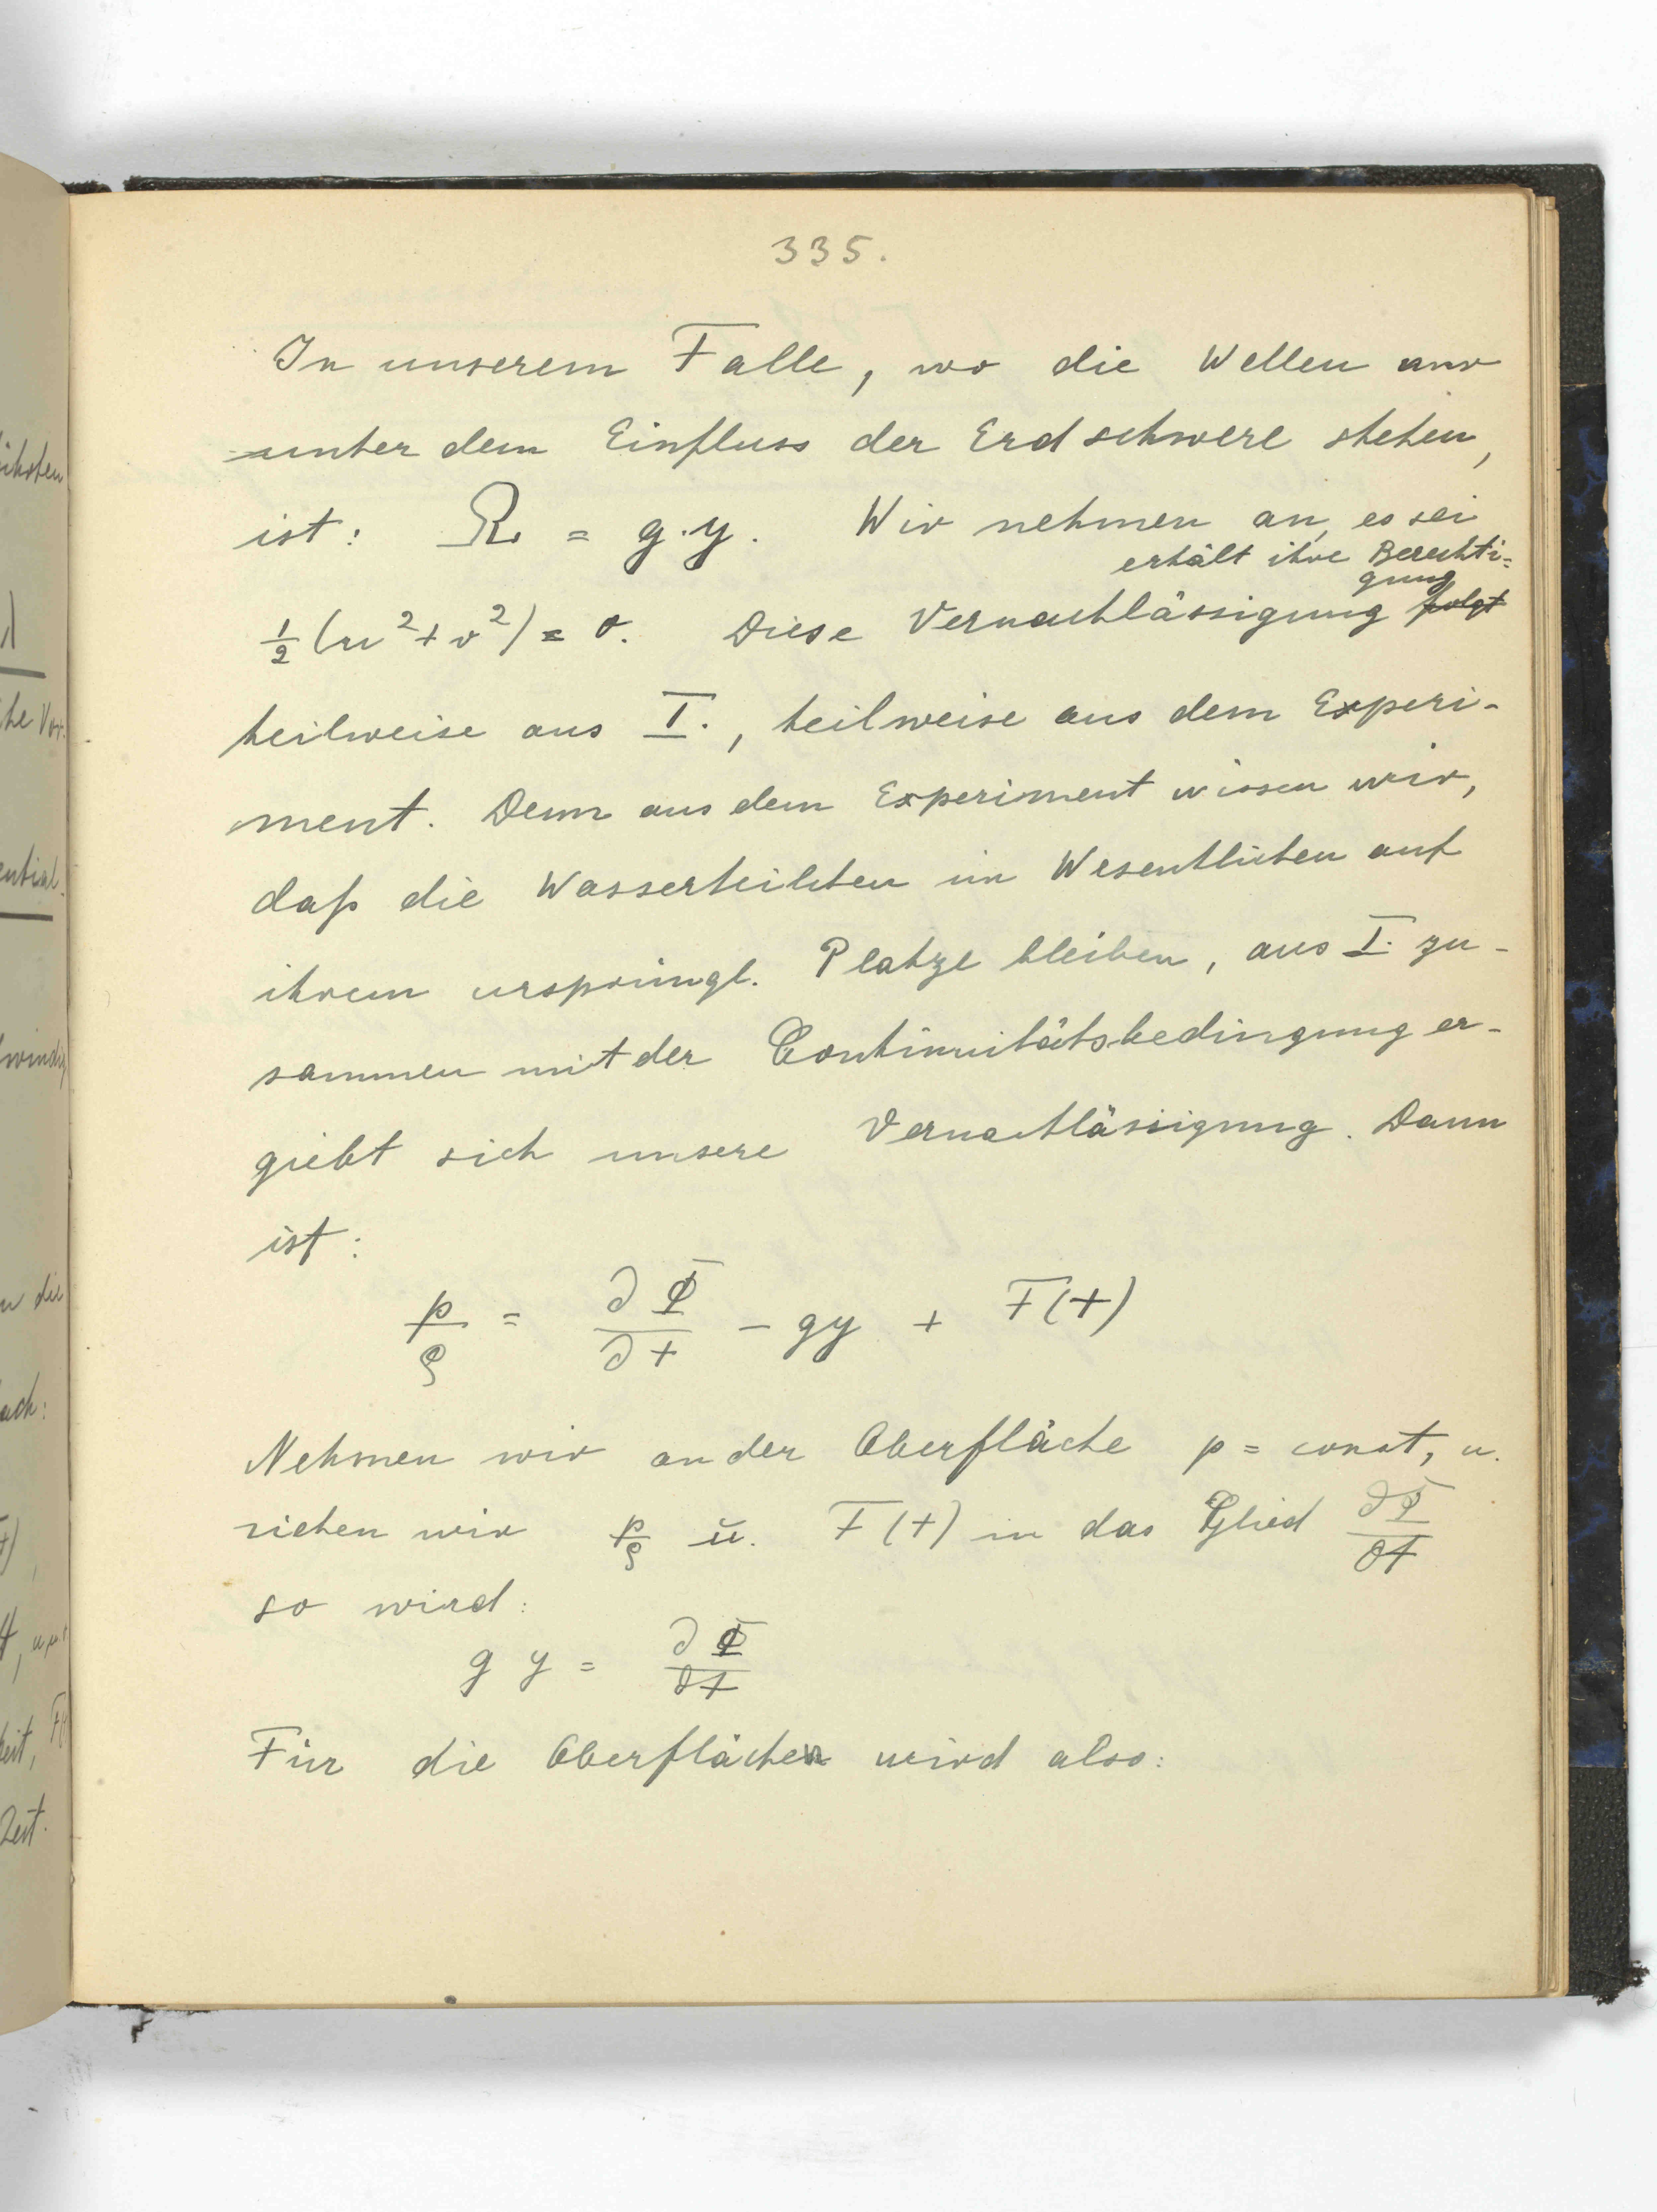 335.
In unserem Falle, wo die Wellen nur
unter dem Einfluss der Erdschwere stehen,
ist: Ω = g.y. Wir nehmen an, es sei
erhält ihre Berechti-
gung
½(u²+v²) = 0. Diese Vernachlässigung folgt
teilweise aus I., teilweise aus dem Experi-
ment. Denn aus dem Experiment wissen wir,
daß die Wasserteilchen im Wesentlichen auf
ihrem ursprüngl. Platze bleiben, aus I. zu-
sammen mit der Continuitätsbedingung er-
giebt sich unsere Vernachlässigung. Dann
ist:
p/ρ = ∂Φ/∂t - gy + F(t)
Nehmen wir an der Oberfläche p = const, u.
ziehen wir p/ρ u. F(t) in das Glied ∂Φ/∂t
so wird:
g y = ∂Φ/∂t
Für die Oberfläche wird also: